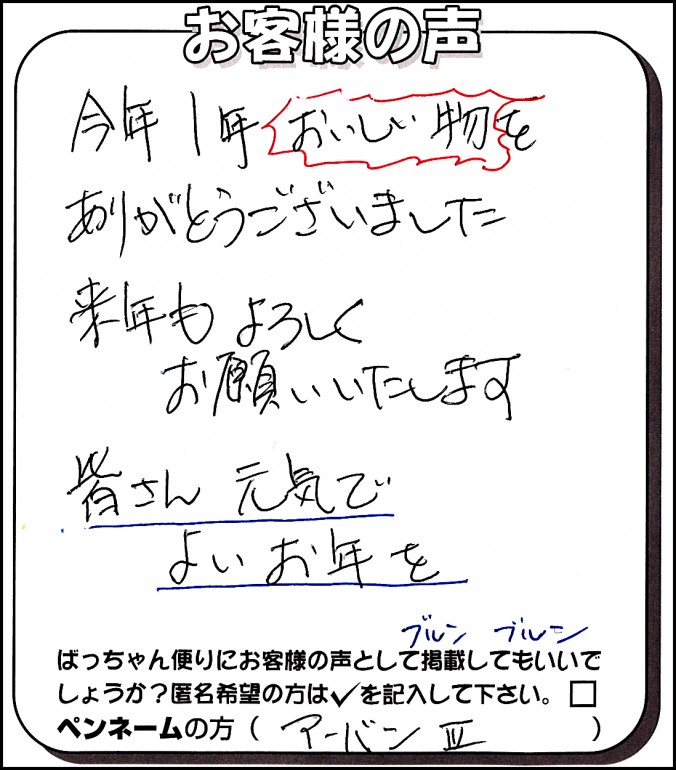 お客様の声
今年1年おいしい物を
ありがとうございました
来年もよろしく
お願いいたします
皆さん 元気で
よいお年を
ブルン ブルン
ばっちゃん便りにお客様の声として掲載してもいいで
しょうか?匿名希望の方は✓を記入して下さい。□
ペンネームの方( アーバン Ⅲ )